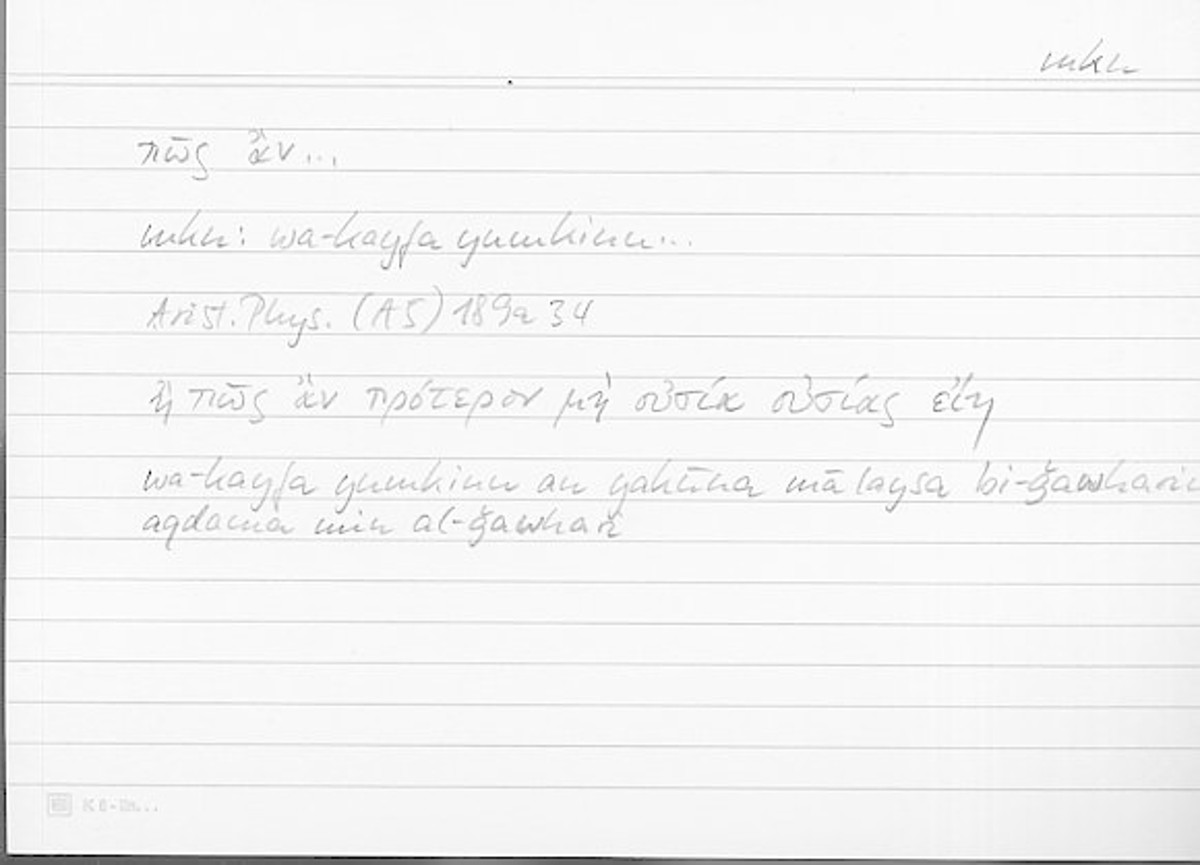 mkn
πῶς ἂν...
mkn: wa-kayfa yumkinu...
Arist. Phys. (A5) 189a 34
ἢ πῶς ἂν πρότερον μὴ οὐσία οὐσίας εἴη
wa-kayfa yumkinu an yakūna mā laysa bi-ǧawharin
aqdama min al-ǧawhari